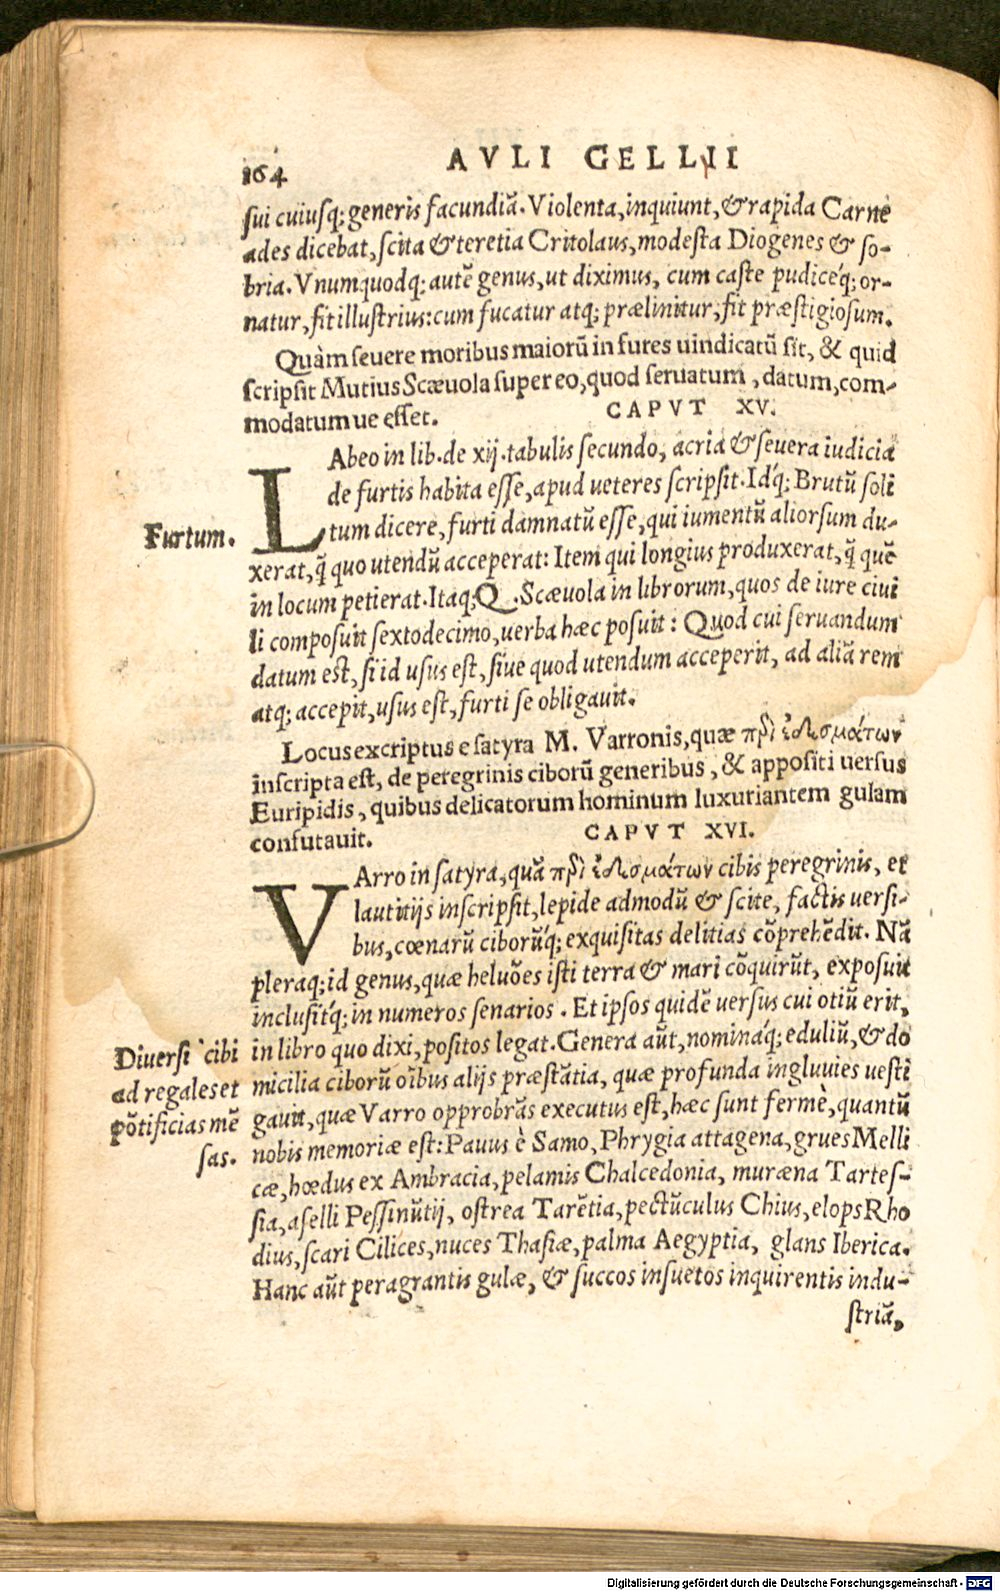 164
AVLI GELLII
sui cuiusq; generis facundiã. Violenta, inquiunt, & rapida Carne
ades dicebat, scita & teretia Critolaus, modesta Diogenes & so-
bria. Vnumquodq; autẽ genus, ut diximus, cum caste pudiceq́; or-
natur, fit illustrius: cum fucatur atq; prælinitur, fit præstigiosum.
Quàm seuere moribus maiorũ in fures uindicatũ sit, & quid
scripsit Mutius Scæuola super eo, quod seruatum, datum, com-
modatum ue esset.
CAPVT XV.
LAbeo in lib. de xij. tabulis secundo, acria & seuera iudicia
de furtis habita esse, apud ueteres scripsit. Idq́; Brutũ soli
Furtum.
tum dicere, furti damnatũ esse, qui iumentũ aliorsum du-
xerat, q̃ quo utendũ acceperat: Item qui longius produxerat, q̃ quẽ
in locum petierat. Itaq; Q. Scæuola in librorum, quos de iure ciui
li composuit sextodecimo, uerba hæc posuit: Quod cui seruandum
datum est, si id usus est, siue quod utendum acceperit, ad aliã rem
atq; accepit, usus est, furti se obligauit.
Locus excriptus e satyra M. Varronis, quæ πρὶ ἐδεσμάτων
inscripta est, de peregrinis ciborũ generibus, & appositi uersus
Euripidis, quibus delicatorum hominum luxuriantem gulam
confutauit.
CAPVT XVI.
VArro in satyra, quã πρὶ ἐδεσμάτων cibis peregrinis, et
lautitijs inscripsit, lepide admodũ & scite, factis uersi-
bus, cœnarũ ciborũq́; exquisitas delitias cõprehẽdit. Nã
pleraq; id genus, quæ heluões isti terra & mari cõquirũt, exposuit
inclusitq́; in numeros senarios. Et ipsos quidẽ uersus cui otiũ erit,
Diuersi cibi
ad regales et
põtificias mẽ
sas.
in libro quo dixi, positos legat. Genera aũt, nominaq́; eduliũ, & do
micilia ciborũ oĩbus alijs præstãtia, quæ profunda ingluuies uesti
gauit, quæ Varro opprobrãs executus est, hæc sunt fermè, quantũ
nobis memoriæ est: Pauus è Samo, Phrygia attagena, grues Melli
cæ, hœdus ex Ambracia, pelamis Chalcedonia, muræna Tartes-
sia, aselli Pessinũtij, ostrea Tarẽtia, pectũculus Chius, elops Rho
dius, scari Cilices, nuces Thasiæ, palma Aegyptia, glans Iberica.
Hanc aũt peragrantis gulæ, & succos insuetos inquirentis indu-
striã,
Digitalisierung gefördert durch die Deutsche Forschungsgemeinschaft - DFG